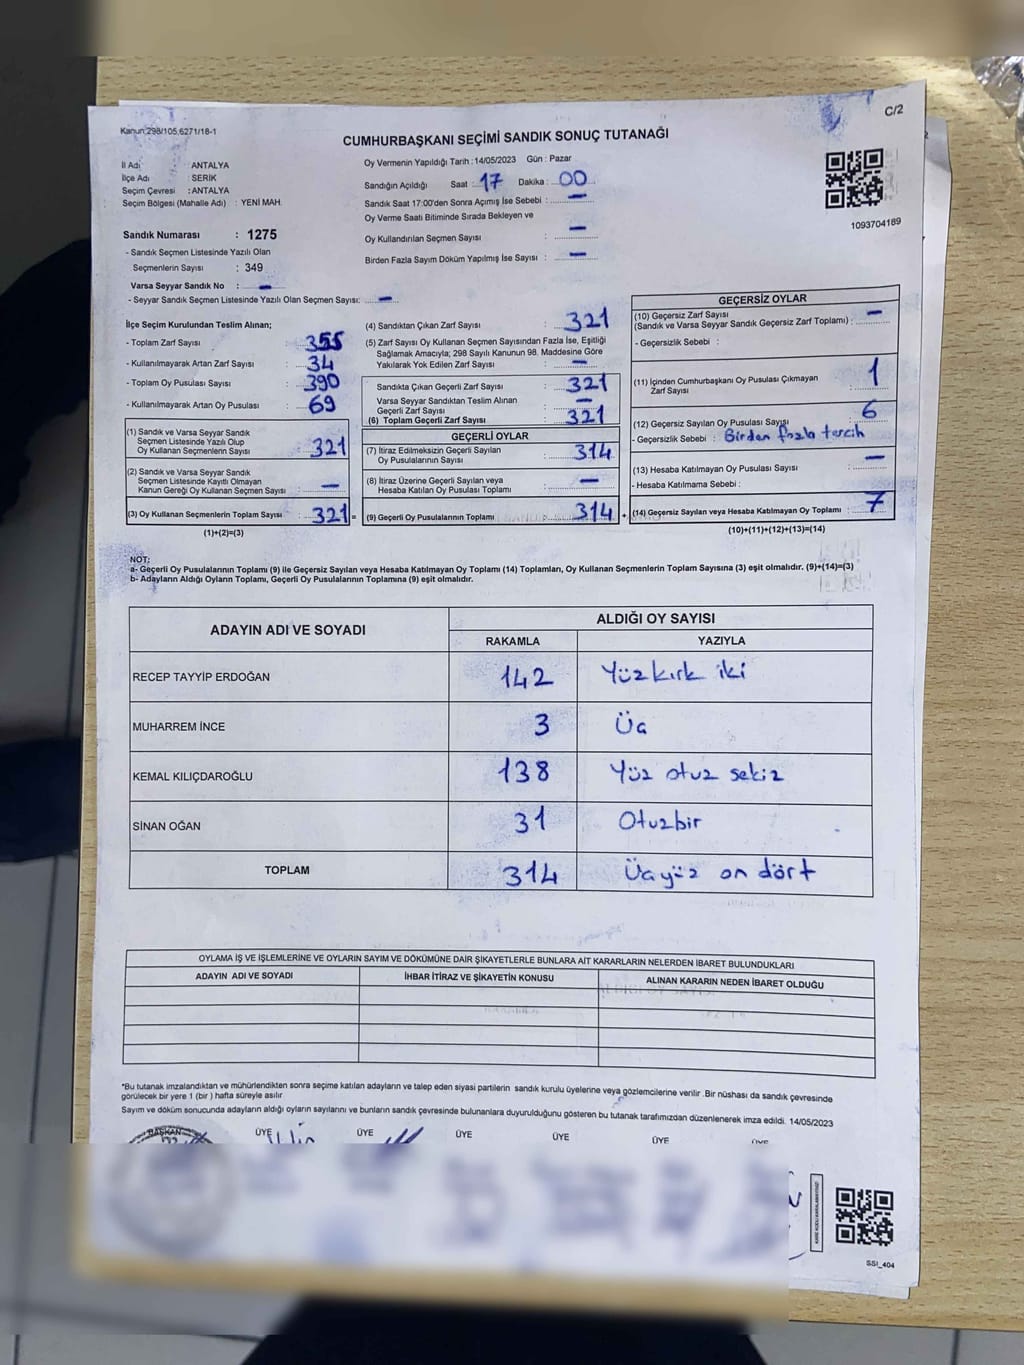 C/2
Kanun:298/105,6271/18-1
CUMHURBAŞKANI SEÇİMİ SANDIK SONUÇ TUTANAĞI
İl Adı : ANTALYA
İlçe Adı : SERİK
Seçim Çevresi : ANTALYA
Seçim Bölgesi (Mahalle Adı) : YENİ MAH.
Sandık Numarası : 1275
- Sandık Seçmen Listesinde Yazılı Olan
Seçmenlerin Sayısı : 349
Varsa Seyyar Sandık No : -
- Seyyar Sandık Seçmen Listesinde Yazılı Olan Seçmen Sayısı: -
Oy Vermenin Yapıldığı Tarih : 14/05/2023 Gün : Pazar
Sandığın Açıldığı Saat : 17 Dakika : 00
Sandık Saat 17:00'den Sonra Açımış İse Sebebi : -
Oy Verme Saati Bitiminde Sırada Bekleyen ve
Oy Kullandırılan Seçmen Sayısı : -
Birden Fazla Sayım Döküm Yapılmış İse Sayısı : -
1093704189
İlçe Seçim Kurulundan Teslim Alınan;
- Toplam Zarf Sayısı : 355
- Kullanılmayarak Artan Zarf Sayısı : 34
- Toplam Oy Pusulası Sayısı : 390
- Kullanılmayarak Artan Oy Pusulası : 69
(1) Sandık ve Varsa Seyyar Sandık
Seçmen Listesinde Yazılı Olup
Oy Kullanan Seçmenlerin Sayısı : 321
(2) Sandık ve Varsa Seyyar Sandık
Seçmen Listesinde Kayıtlı Olmayan
Kanun Gereği Oy Kullanan Seçmen Sayısı : -
(3) Oy Kullanan Seçmenlerin Toplam Sayısı : 321 =
(1)+(2)=(3)
(4) Sandıktan Çıkan Zarf Sayısı : 321
(5) Zarf Sayısı Oy Kullanan Seçmen Sayısından Fazla İse, Eşitliği
Sağlamak Amacıyla; 298 Sayılı Kanunun 98. Maddesine Göre
Yakılarak Yok Edilen Zarf Sayısı : -
Sandıkta Çıkan Geçerli Zarf Sayısı : 321
Varsa Seyyar Sandıktan Teslim Alınan
Geçerli Zarf Sayısı : -
(6) Toplam Geçerli Zarf Sayısı : 321
GEÇERLİ OYLAR
(7) İtiraz Edilmeksizin Geçerli Sayılan
Oy Pusulalarının Sayısı : 314
(8) İtiraz Üzerine Geçerli Sayılan veya
Hesaba Katılan Oy Pusulası Toplamı : -
(9) Geçerli Oy Pusulalarının Toplamı : 314 +
GEÇERSİZ OYLAR
(10) Geçersiz Zarf Sayısı
(Sandık ve Varsa Seyyar Sandık Geçersiz Zarf Toplamı) : -
- Geçersizlik Sebebi :
(11) İçinden Cumhurbaşkanı Oy Pusulası Çıkmayan
Zarf Sayısı : 1
(12) Geçersiz Sayılan Oy Pusulası Sayısı : 6
- Geçersizlik Sebebi : Birden fazla tercih
(13) Hesaba Katılmayan Oy Pusulası Sayısı : -
- Hesaba Katılmama Sebebi :
(14) Geçersiz Sayılan veya Hesaba Katılmayan Oy Toplamı : 7
(10)+(11)+(12)+(13)=(14)
NOT:
a- Geçerli Oy Pusulalarının Toplamı (9) ile Geçersiz Sayılan veya Hesaba Katılmayan Oy Toplamı (14) Toplamları, Oy Kullanan Seçmenlerin Toplam Sayısına (3) eşit olmalıdır. (9)+(14)=(3)
b- Adayların Aldığı Oyların Toplamı, Geçerli Oy Pusulalarının Toplamına (9) eşit olmalıdır.
ADAYIN ADI VE SOYADI
ALDIĞI OY SAYISI
RAKAMLA YAZIYLA
RECEP TAYYİP ERDOĞAN 142 Yüzkırk iki
MUHARREM İNCE 3 Üç
KEMAL KILIÇDAROĞLU 138 Yüz otuz sekiz
SİNAN OĞAN 31 Otuzbir
TOPLAM 314 Üçyüz on dört
OYLAMA İŞ VE İŞLEMLERİNE VE OYLARIN SAYIM VE DÖKÜMÜNE DAİR ŞİKAYETLERLE BUNLARA AİT KARARLARIN NELERDEN İBARET BULUNDUKLARI
ADAYIN ADI VE SOYADI İHBAR İTİRAZ VE ŞİKAYETİN KONUSU ALINAN KARARIN NEDEN İBARET OLDUĞU
*Bu tutanak imzalandıktan ve mühürlendikten sonra seçime katılan adayların ve talep eden siyasi partilerin sandık kurulu üyelerine veya gözlemcilerine verilir .Bir nüshası da sandık çevresinde
görülecek bir yere 1 (bir ) hafta süreyle asılır
Sayım ve döküm sonucunda adayların aldığı oyların sayılarını ve bunların sandık çevresinde bulunanlara duyurulduğunu gösteren bu tutanak tarafımızdan düzenlenerek imza edildi. 14/05/2023
BAŞKAN ÜYE ÜYE ÜYE ÜYE ÜYE ÜYE
SSI_404